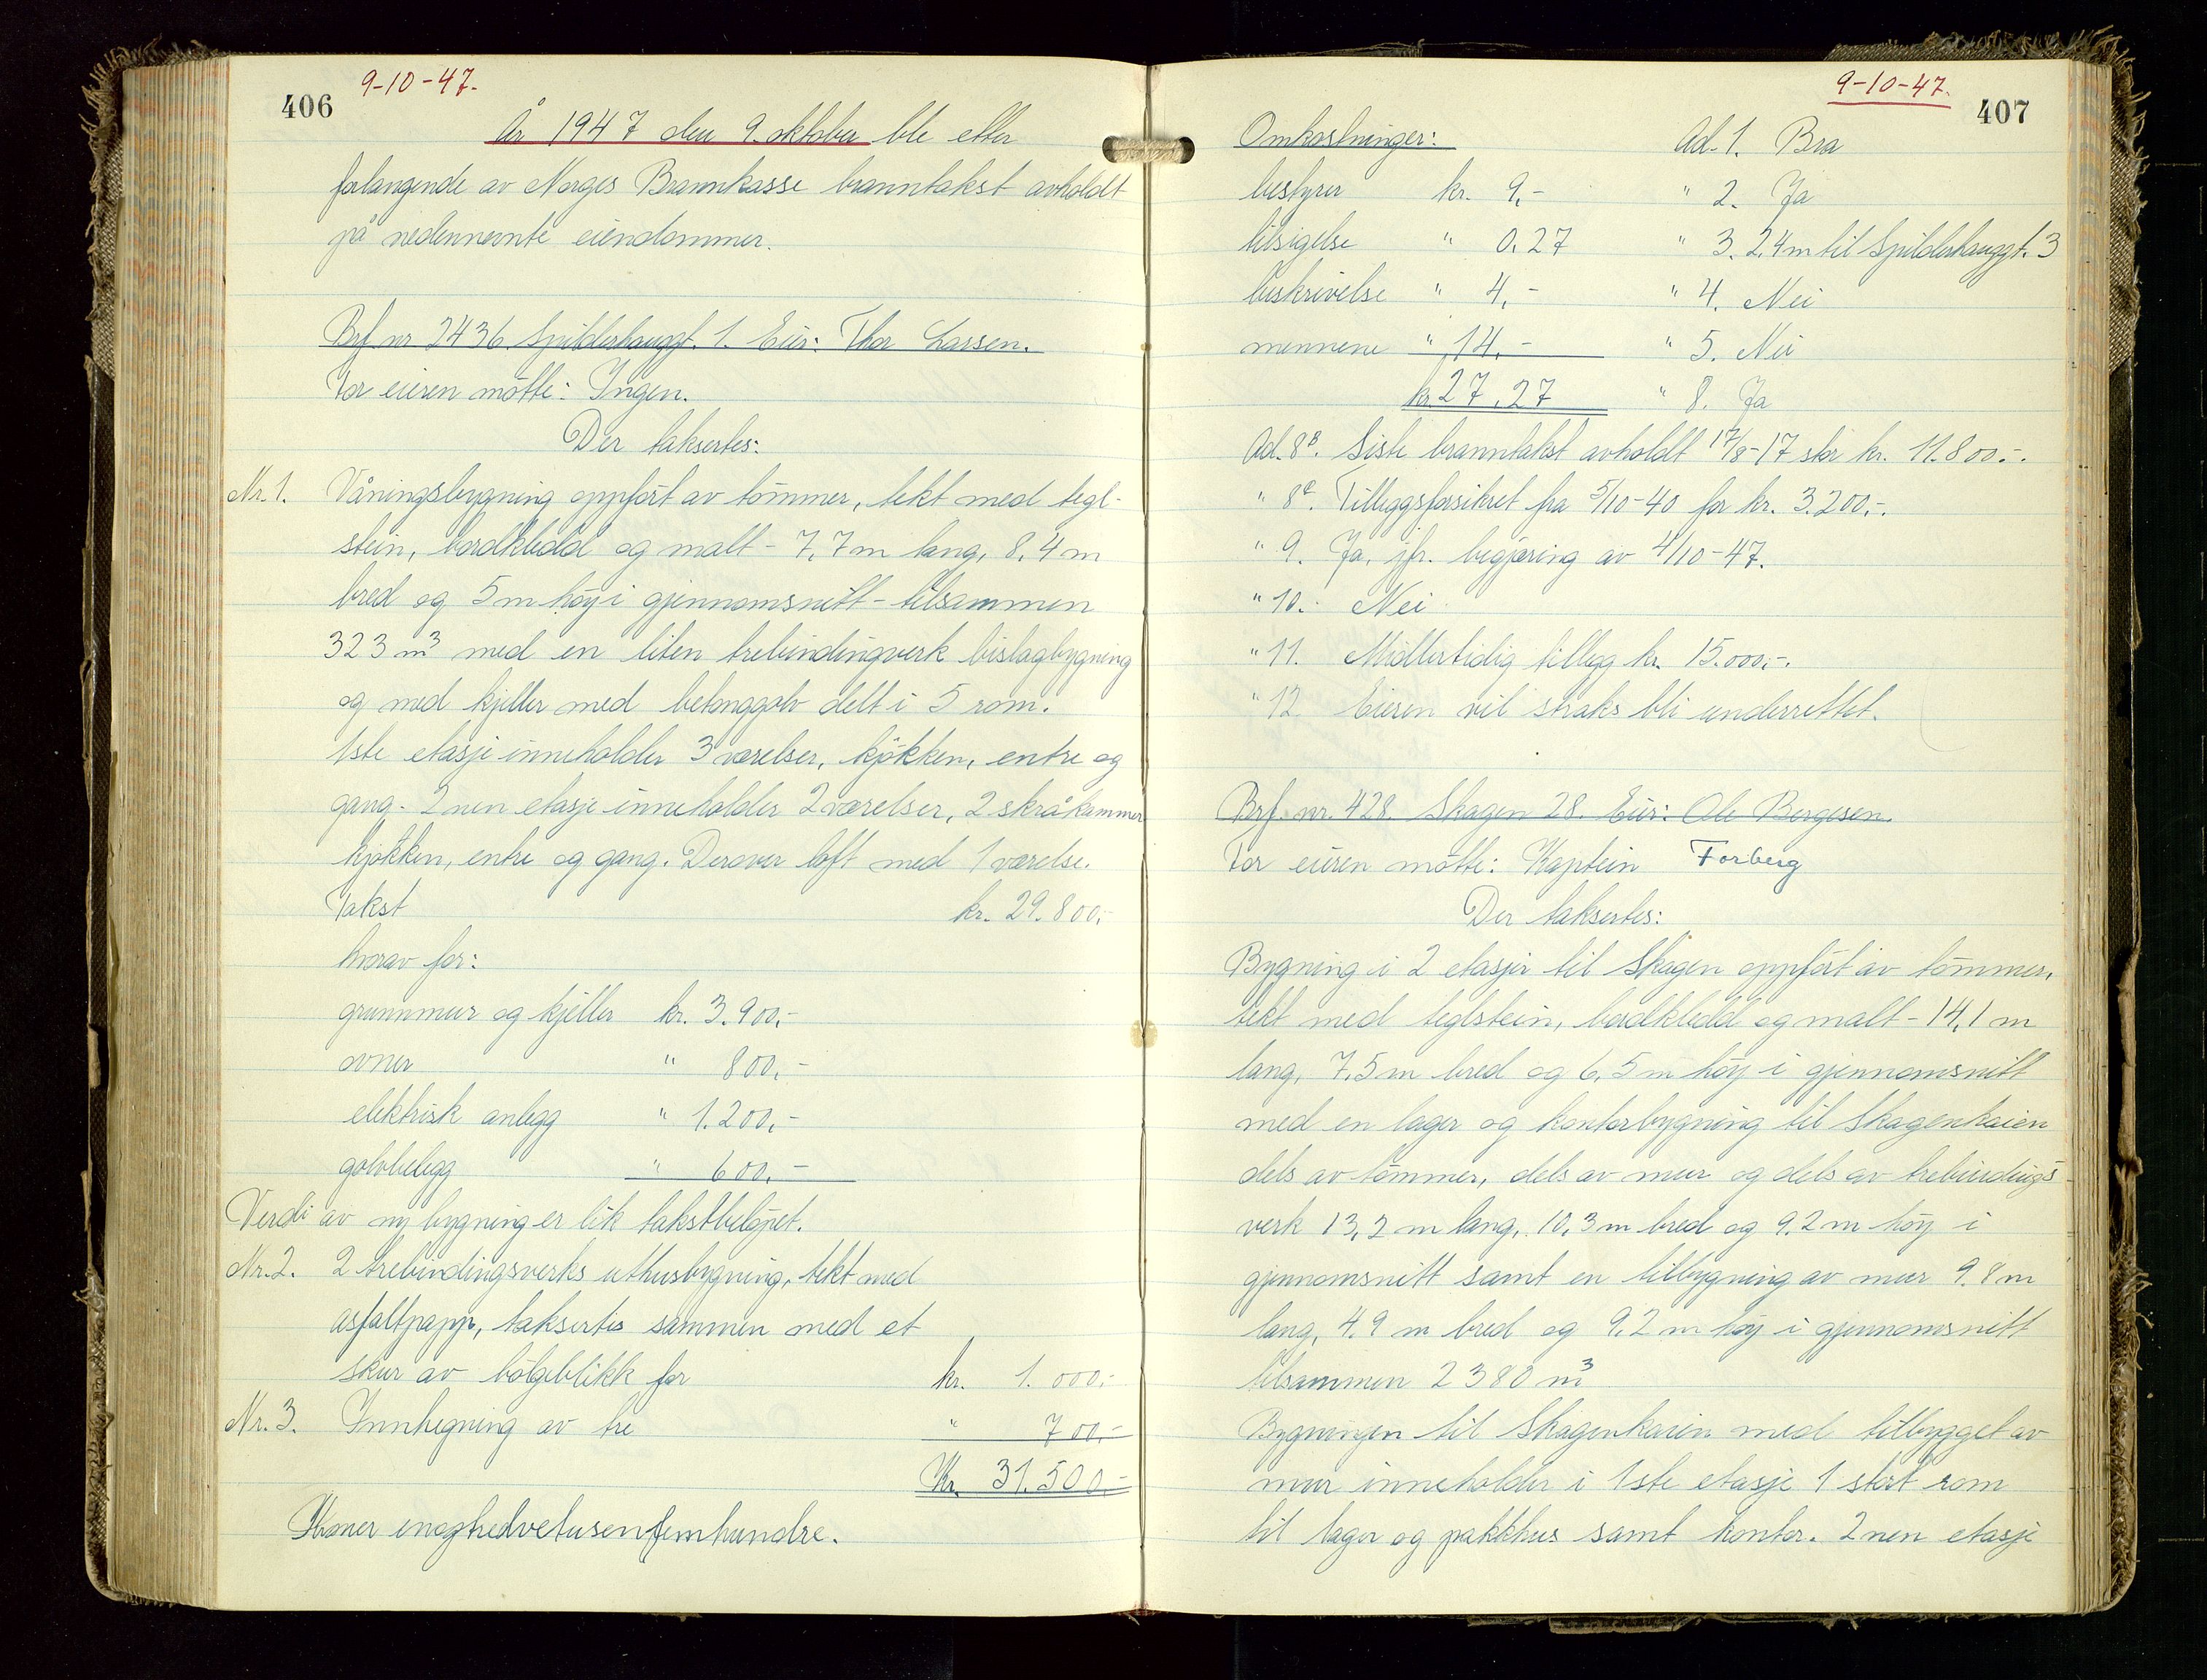 406
9-10-47.
År 1947 den 9. oktober ble etter
forlangende av Norges Brannkasse branntakst avholdt
på nedennevnte eiendommer.
Brf. nr 2436. Spilderhauggt. 1. Eier: Thor Larsen.
For eieren møtte: Ingen.
Der taksertes:
Nr. 1. Våningsbygning oppført av tømmer, tekt med tegl-
stein, bordkledd og malt - 7,7 m lang, 8,4 m
bred og 5 m høy i gjennomsnitt - tilsammen
323 m³ med en liten trebindingverk bislagbygning
og med kjeller med betonggolv delt i 5 rom.
1ste etasje inneholder 3 værelser, kjøkken, entre og
gang - 2nen etasje inneholder 2 værelser, 2 skråkammer
kjøkken, entre og gang. Derover loft med 1 værelse.
Takst kr. 29.800,-
hvorav for:
grunnmur og kjeller kr. 3.900,-
ovner " 800,-
elektrisk anlegg " 1.200,-
golvbelegg " 600,-
Verdi av ny bygning er lik takstbeløpet.
Nr. 2. 2 trebindingsverks uthusbygning, tekt med
asfaltpapp, taksertes sammen med et
skur av bølgeblikk for kr. 1.000,-
Nr. 3. Innhegning av tre " 700,-
Kr. 31.500,-
Kroner enogtredvetusenfemhundre.
9-10-47.
407
Omkostninger: Ad. 1. Bra
bestyrer kr. 9,- " 2. Ja
tilsigelse " 0.27 " 3. 2,4 m til Spilderhauggt. 3
beskrivelse " 4,- " 4. Nei
mennene " 14,- " 5. Nei
kr. 27,27 " 8. Ja
Ad. 8B. Siste branntakst avholdt 17/8-17 stor kr. 11.800.-.
" 8C. Tilleggsforsikret fra 5/10-40 for kr. 3.200,-.
" 9. Ja, jfr. begjæring av 4/10-47.
" 10. Nei
" 11. Midlertidig tillegg kr. 15.000,-.
" 12 Eieren vil straks bli underrettet.
Brf. nr. 428. Skagen 28. Eier: Ole Bergesen.
For eieren møtte: Kaptein Forberg
Der taksertes:
Bygning i 2 etasjer til Skagen oppført av tømmer,
tekt med teglstein, bordkledd og malt - 14,1 m
lang, 7,5 m bred og 6,5 m høy i gjennomsnitt
med en lager og kontorbygning til Skagenkaien
dels av tømmer, dels av mur og dels av trebindings-
verk 13,2 m lang, 10,3 m bred og 9,2 m høy i
gjennomsnitt samt en tilbygning av mur 9.8 m
lang, 4.9 m bred og 9,2 m høy i gjennomsnitt
tilsammen 2380 m³
Bygningen til Skagenkaien med tilbygget av
mur inneholder i 1ste etasje 1 stort rom
til lager og pakkhus samt kontor. 2nen etasje